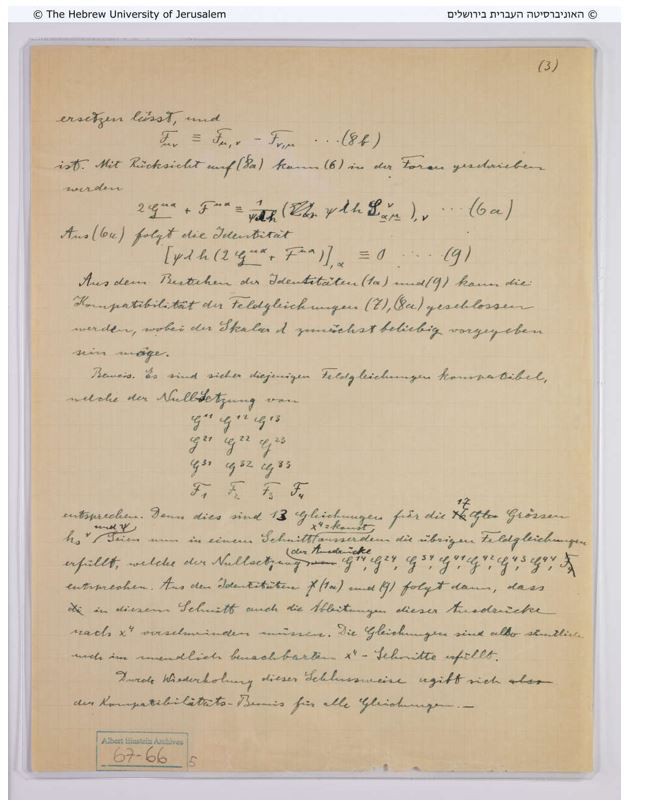 © The Hebrew University of Jerusalem
© האוניברסיטה העברית בירושלים
(3)
ersetzen lässt, und
F_μν ≡ F_μ,ν - F_ν,μ ... (8b)
ist. Mit Rücksicht auf (8a) kann (6) in der Form geschrieben
werden
(6a)
Aus (6a) folgt die Identität
[ψλh(2G^μα + F^μα)],α ≡ 0 .... (9)
Aus dem Bestehen der Identitäten (1a) und (9) kann die
Kompatibilität der Feldgleichungen (7), (8a) geschlossen
werden, wobei der Skalar λ zunächst beliebig vorgegeben
sein möge.
Beweis. Es sind sicher diejenigen Feldgleichungen kompatibel,
welche der Nullsetzung von
G^11 G^12 G^13
G^21 G^22 G^23
G^31 G^32 G^33
F_1 F_2 F_3 F_4
entsprechen. Denn dies sind 13 Gleichungen für die 17 Grössen
und ψ x^4 = konst
Seien nun in einem Schnitt ausserdem die übrigen Feldgleichungen
der Ausdrücke
erfüllt, welche der Nullsetzung G^14, G^24, G^34, G^41, G^42, G^43, G^44,
entsprechen. Aus den Identitäten (1a) und (9) folgt dann, dass
in diesem Schnitt auch die Ableitungen dieser Ausdrücke
nach x^4 verschwinden müssen. Die Gleichungen sind also sämtlich
auch im unendlich benachbarten x^4-Schnitte erfüllt.
Durch Wiederholung dieser Schlussweise ergibt sich
der Kompatibilitäts-Beweis für alle Gleichungen. —
Albert Einstein Archives
67-66
5